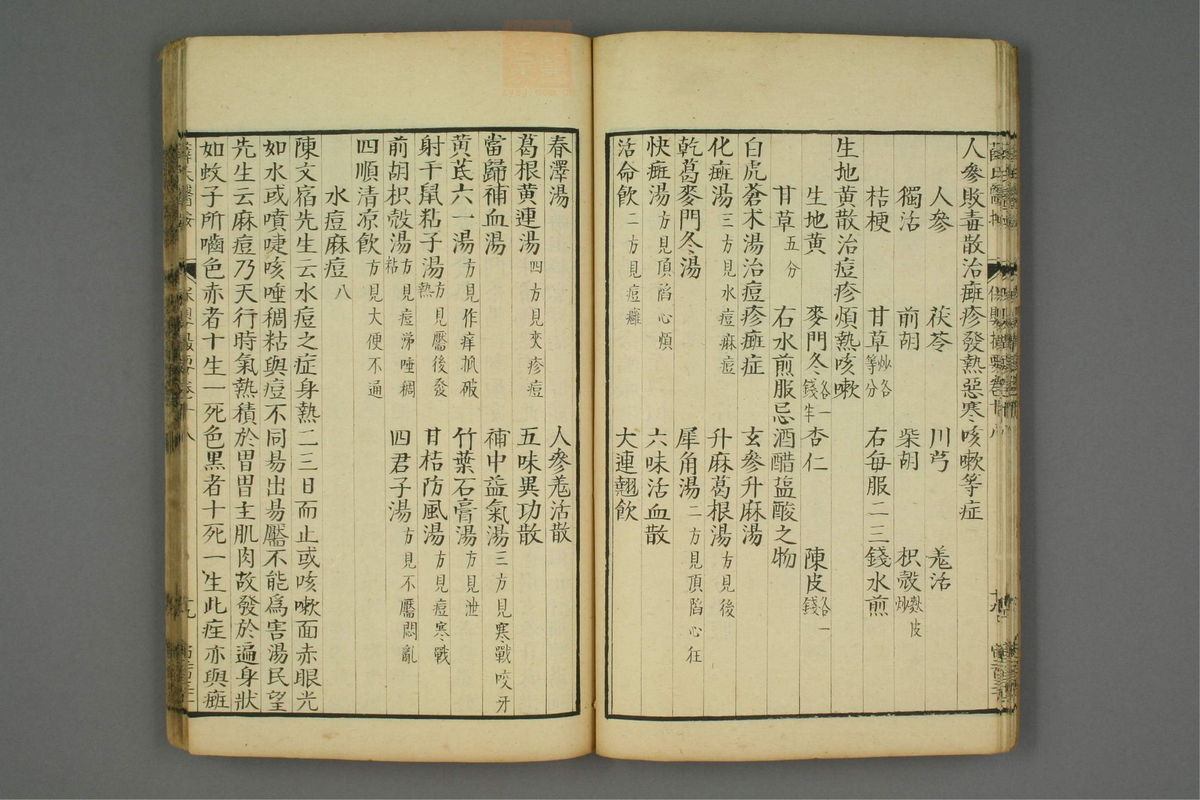 人參敗毒散治癍疹發熱惡寒咳嗽等症
人參 茯苓 川芎 羗活
獨活 前胡 柴胡 枳殻麩皮炒
桔梗 甘草炒各等分 右每服二三錢水煎
生地黄散治痘疹煩熱咳嗽
生地黄 麥門冬各一錢半 杏仁 陳皮各一錢
甘草五分 右水煎服忌酒醋盐酸之物
白虎蒼术湯治痘疹癍症 玄參升麻湯
化癍湯三方見水痘麻痘 升麻葛根湯方見後
乾葛麥門冬湯 犀角湯二方見頂陷心狂
快癍湯方見頂陷心煩 六味活血散
活命飲二方見痘癰 大連翹飲
春澤湯 人參羗活散
葛根黄連湯四方見夾疹痘 五味異功散
當歸補血湯 補中益氣湯三方見寒戰咬牙
黄茋六一湯方見作痒抓破 竹葉石膏湯方見泄
射干鼠粘子湯方見靨後發熱 甘桔防風湯方見痘寒戰
前胡枳殻湯方見痘涕唾稠粘 四君子湯方見不靨悶亂
四順清凉飲方見大便不通
水痘麻痘八
陳文宿先生云水痘之症身熱二三日而止或咳嗽面赤眼光
如水或噴啑咳唾稠粘與痘不同易出易靨不能爲害湯民望
先生云麻痘乃天行時氣熱積於胃胃主肌肉故發於遍身狀
如蚊子所嚙色赤者十生一死色黑者十死一生此症亦與癍